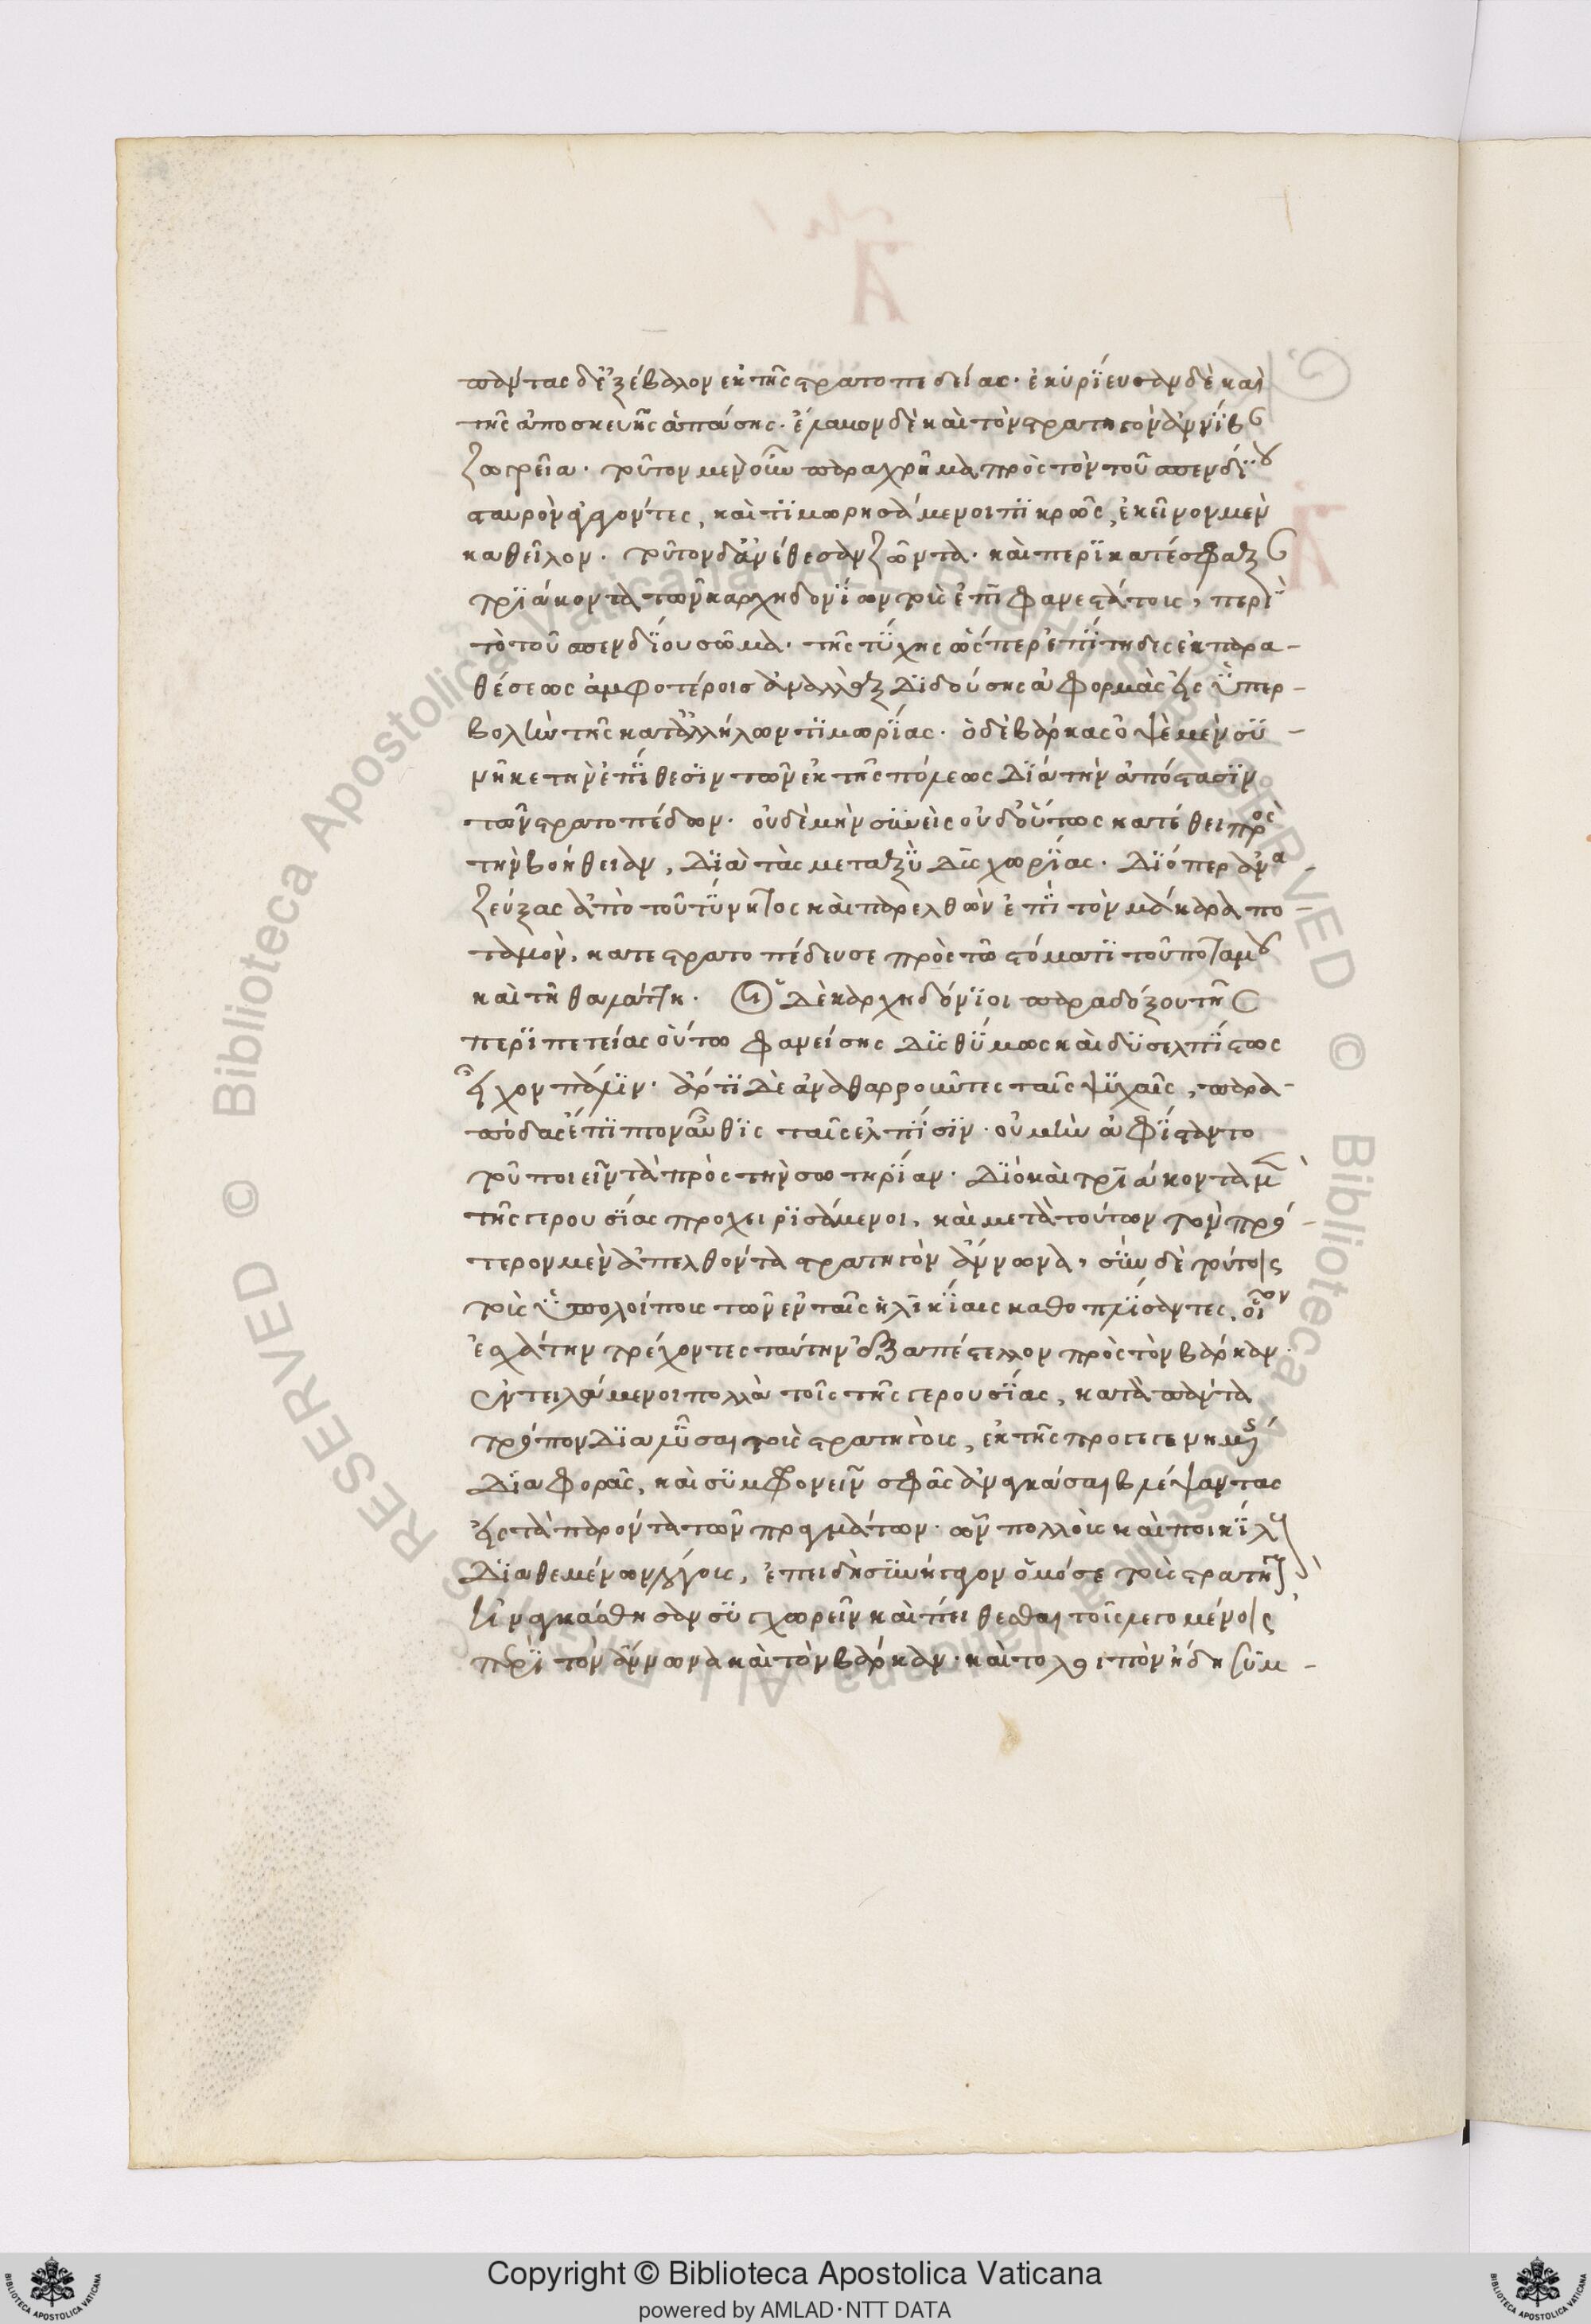 πάντας δ' ἐξέβαλον ἐκ τῆς στρατοπεδείας· ἐκυρίευσαν δὲ καὶ
τῆς ἀποσκευῆς ἁπάσης· ἔλαβον δὲ καὶ τὸν στρατηγὸν ἀννίβ
ζωγρεῖα· τοῦτον μὲν οὖν παραχρῆμα πρὸς τὸν τοῦ σπενδίου
σταυρὸν ἀγαγόντες, καὶ τιμωρησάμενοι πικρῶς, ἐκεῖνον μὲν
καθεῖλον· τοῦτον δ' ἀνέθεσαν ζῶντα· καὶ περικατέσφαξ
τριάκοντα τῶν καρχηδονίων τοὺς ἐπιφανεστάτους, περὶ
τὸ τοῦ σπενδίου σῶμα· τῆς τύχης ὥσπερ ἐπίτηδες ἐκ παρα-
θέσεως ἀμφοτέροις ἀναλλὰξ διδούσης ἀφορμὰς εἰς ὑπερ-
βολὴν τῆς κατ' ἀλλήλων τιμωρίας· ὁ δὲ βάρκας ὀψὲ μὲν συ-
νῆκε τὴν ἐπίθεσιν τῶν ἐκ τῆς πόλεως διὰ τὴν ἀπόστασιν
τῶν στρατοπέδων· οὐδὲ μὴν συνεὶς οὐδ' οὕτως κατέθει πρὸς
τὴν βοήθειαν, διὰ τὰς μεταξὺ δυσχωρίας· διόπερ ἀνα-
ζεύξας ἀπὸ τοῦ τύνητος καὶ παρελθὼν ἐπὶ τὸν μάκαρα πο-
ταμὸν, κατεστρατοπέδευσε πρὸς τῷ στόματι τοῦ ποταμοῦ
καὶ τῇ θαλάττῃ· οἱ δὲ καρχηδόνιοι παραδόξου τῆς
περιπετείας αὐτῶ φανείσης δυσθύμως καὶ δυσελπίστως
εἶχον πάλιν· ἄρτι δὲ ἀναθαρροῦντες ταῖς ψυχαῖς, παρὰ
πόδας ἔπιπτον αὖθις ταῖς ἐλπίσιν· οὐ μὴν ἀφίσταντο
τοῦ ποιεῖν τὰ πρὸς τὴν σωτηρίαν· διὸ καὶ τριάκοντα μὲν
τῆς γερουσίας προχειρισάμενοι, καὶ μετὰ τούτων τὸν πρό-
τερον μὲν ἀπελθόντα στρατηγὸν ἄννωνα, σὺν δὲ τούτοις
τοὺς ὑπολοίπους τῶν ἐν ταῖς ἡλικίαις καθοπλίσαντες, οἷον
ἐσχάτην τρέχοντες ταύτην ἐξαπέστελλον πρὸς τὸν βάρκαν·
ἐντειλάμενοι πολλὰ τοῖς τῆς γερουσίας, κατὰ πάντα
τρόπον διαλῦσαι τοὺς στρατηγοὺς, ἐκ τῆς προγεγενημένης
διαφορᾶς, καὶ συμφονεῖν σφᾶς ἀναγκάσαι βλέψαντας
εἰς τὰ παρόντα τῶν πραγμάτων· ὧν πολλοὺς καὶ ποικίλους
διαθεμένων λόγους, ἐπειδὴ συνήγαγον ὁμόσε τοὺς στρατηγοὺς,
ἠναγκάσθησαν συγχωρεῖν καὶ πείθεσθαι τοῖς λεγομένοις
περὶ τὸν ἄννωνα καὶ τὸν βάρκαν· καὶ τὸ λοιπὸν ἤδη συμ-
Copyright © Biblioteca Apostolica Vaticana
powered by AMLAD·NTT DATA